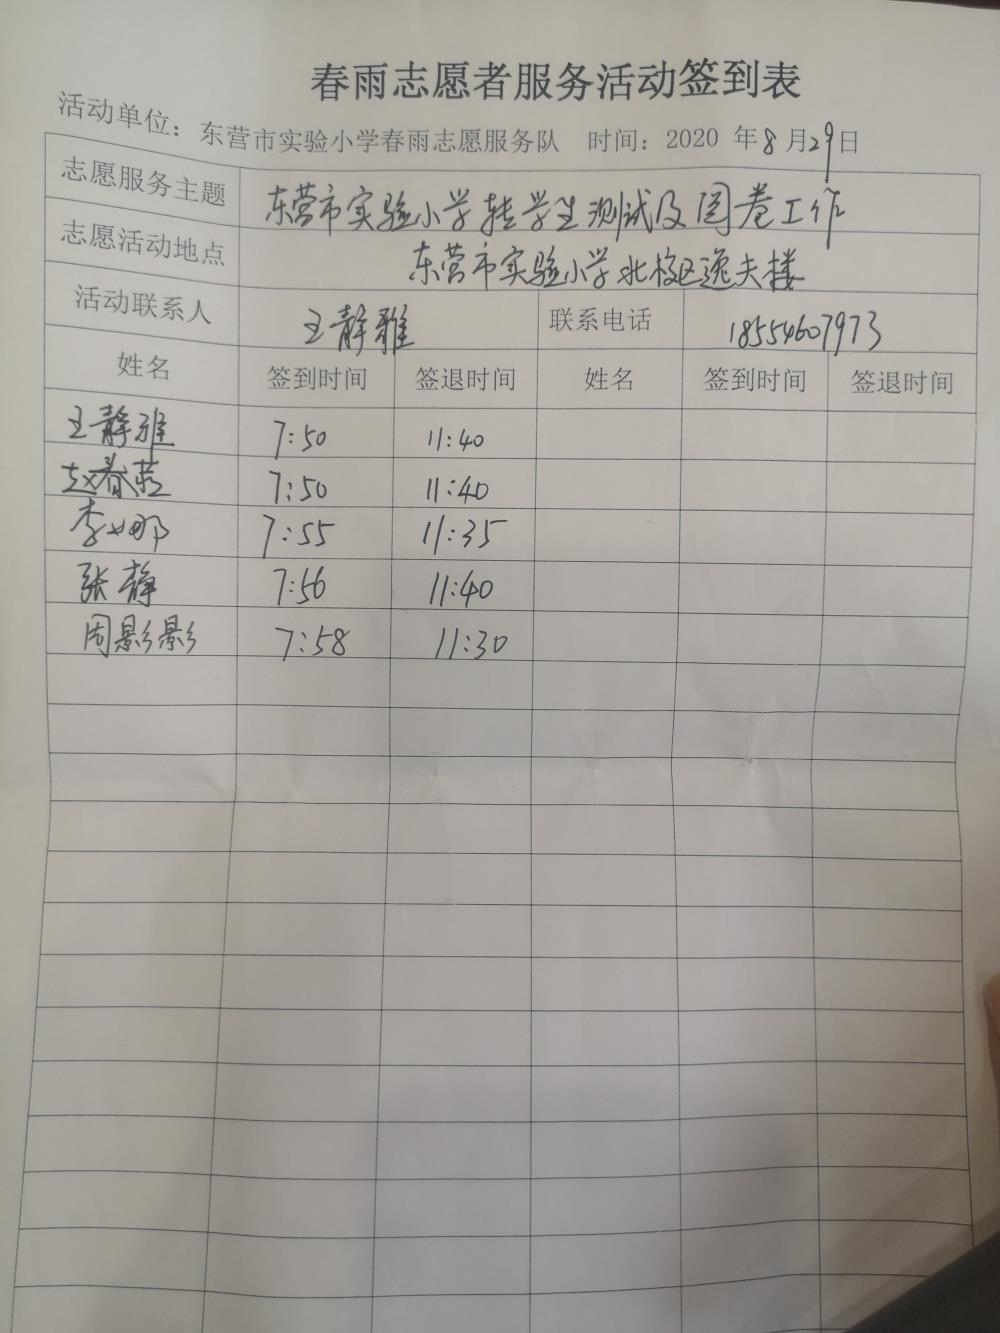 春雨志愿者服务活动签到表
活动单位：东营市实验小学春雨志愿服务队 时间：2020 年8月29日
志愿服务主题 东营市实验小学转学生测试及阅卷工作
志愿活动地点 东营市实验小学北校区逸夫楼
活动联系人 王静雅 联系电话 18554607973
姓名 签到时间 签退时间 姓名 签到时间 签退时间
王静雅 7:50 11:40
赵春蕊 7:50 11:40
李娜 7:55 11:35
张静 7:56 11:40
周影影 7:58 11:30